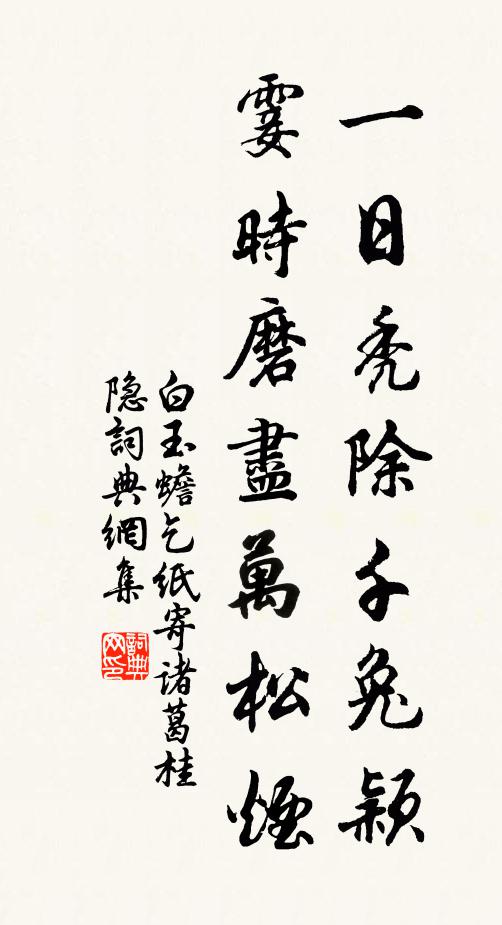 一日秃除千兔颖
霎時磨盡萬松煙
白玉蟾乞紙寄諸葛桂
隐詞典網集
詞典网印